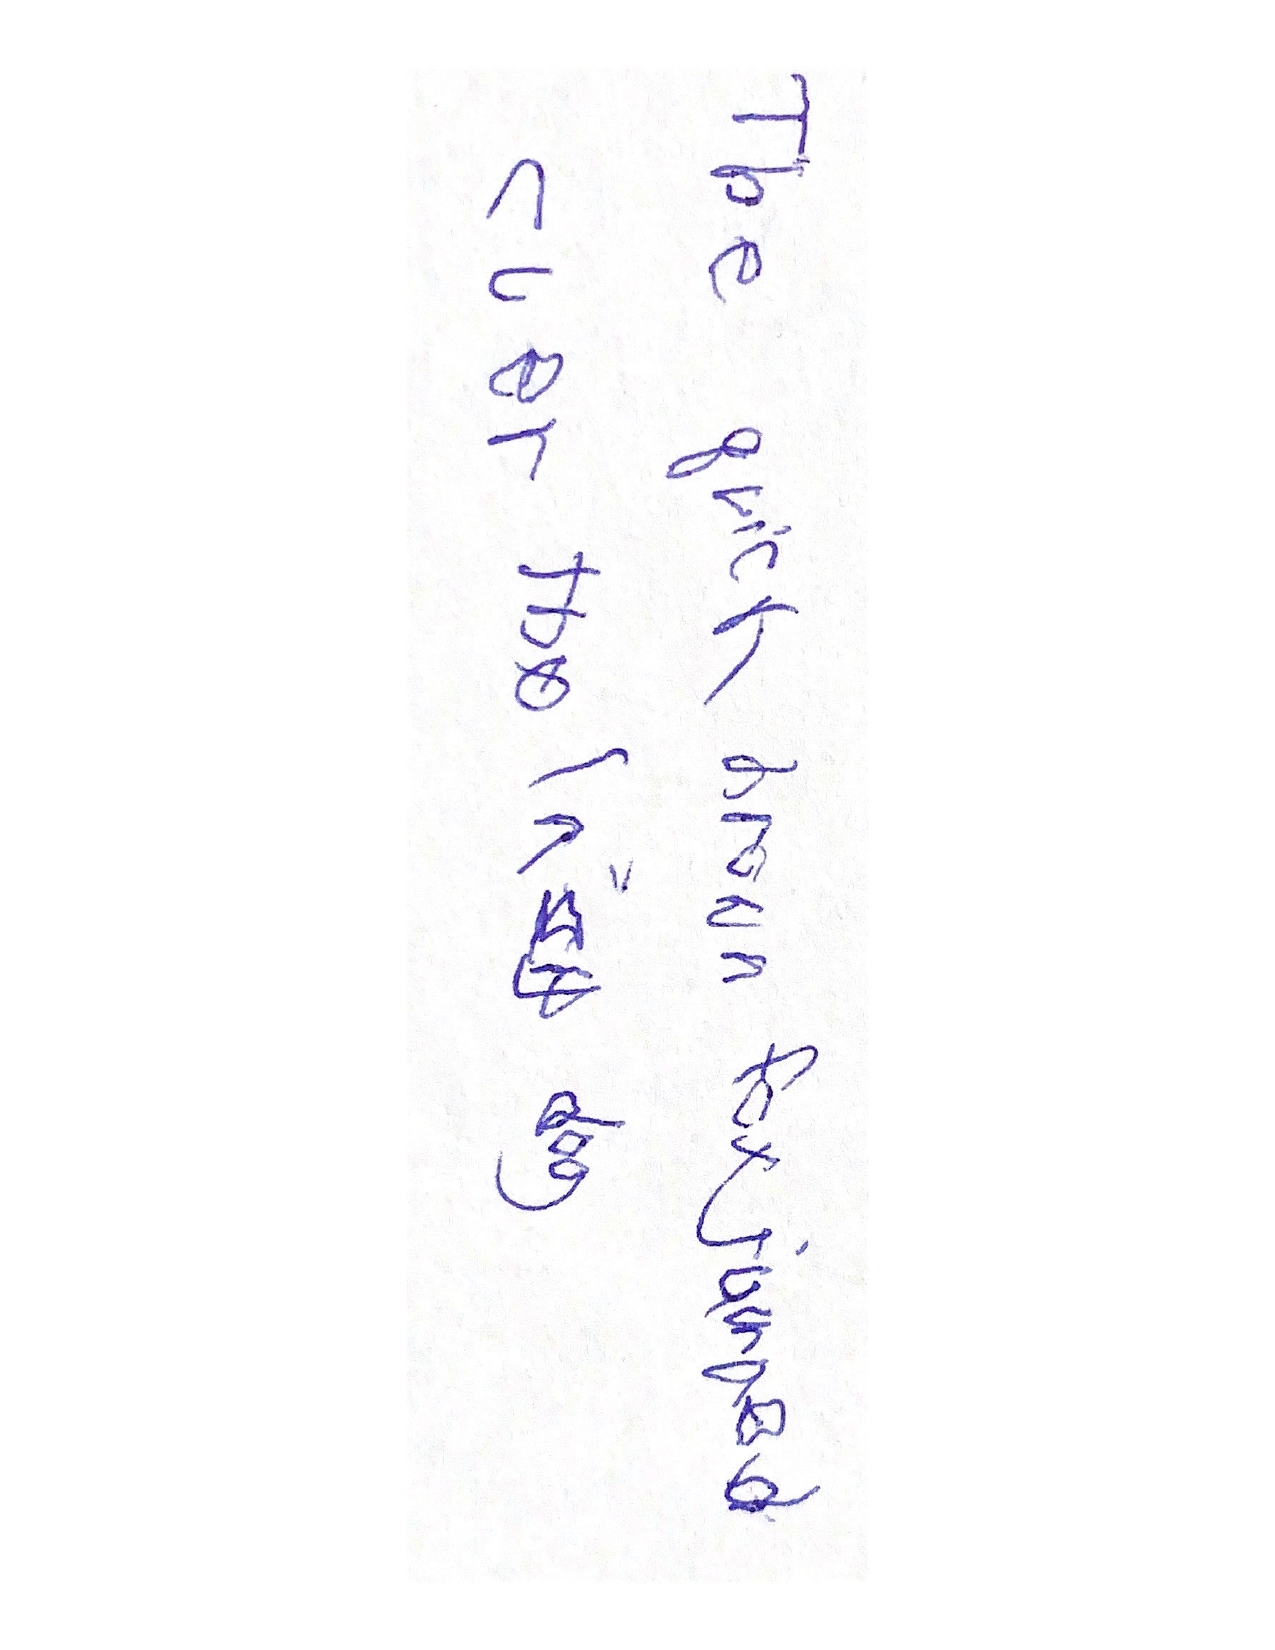 The quick brown fox jumped
over the lazy dog